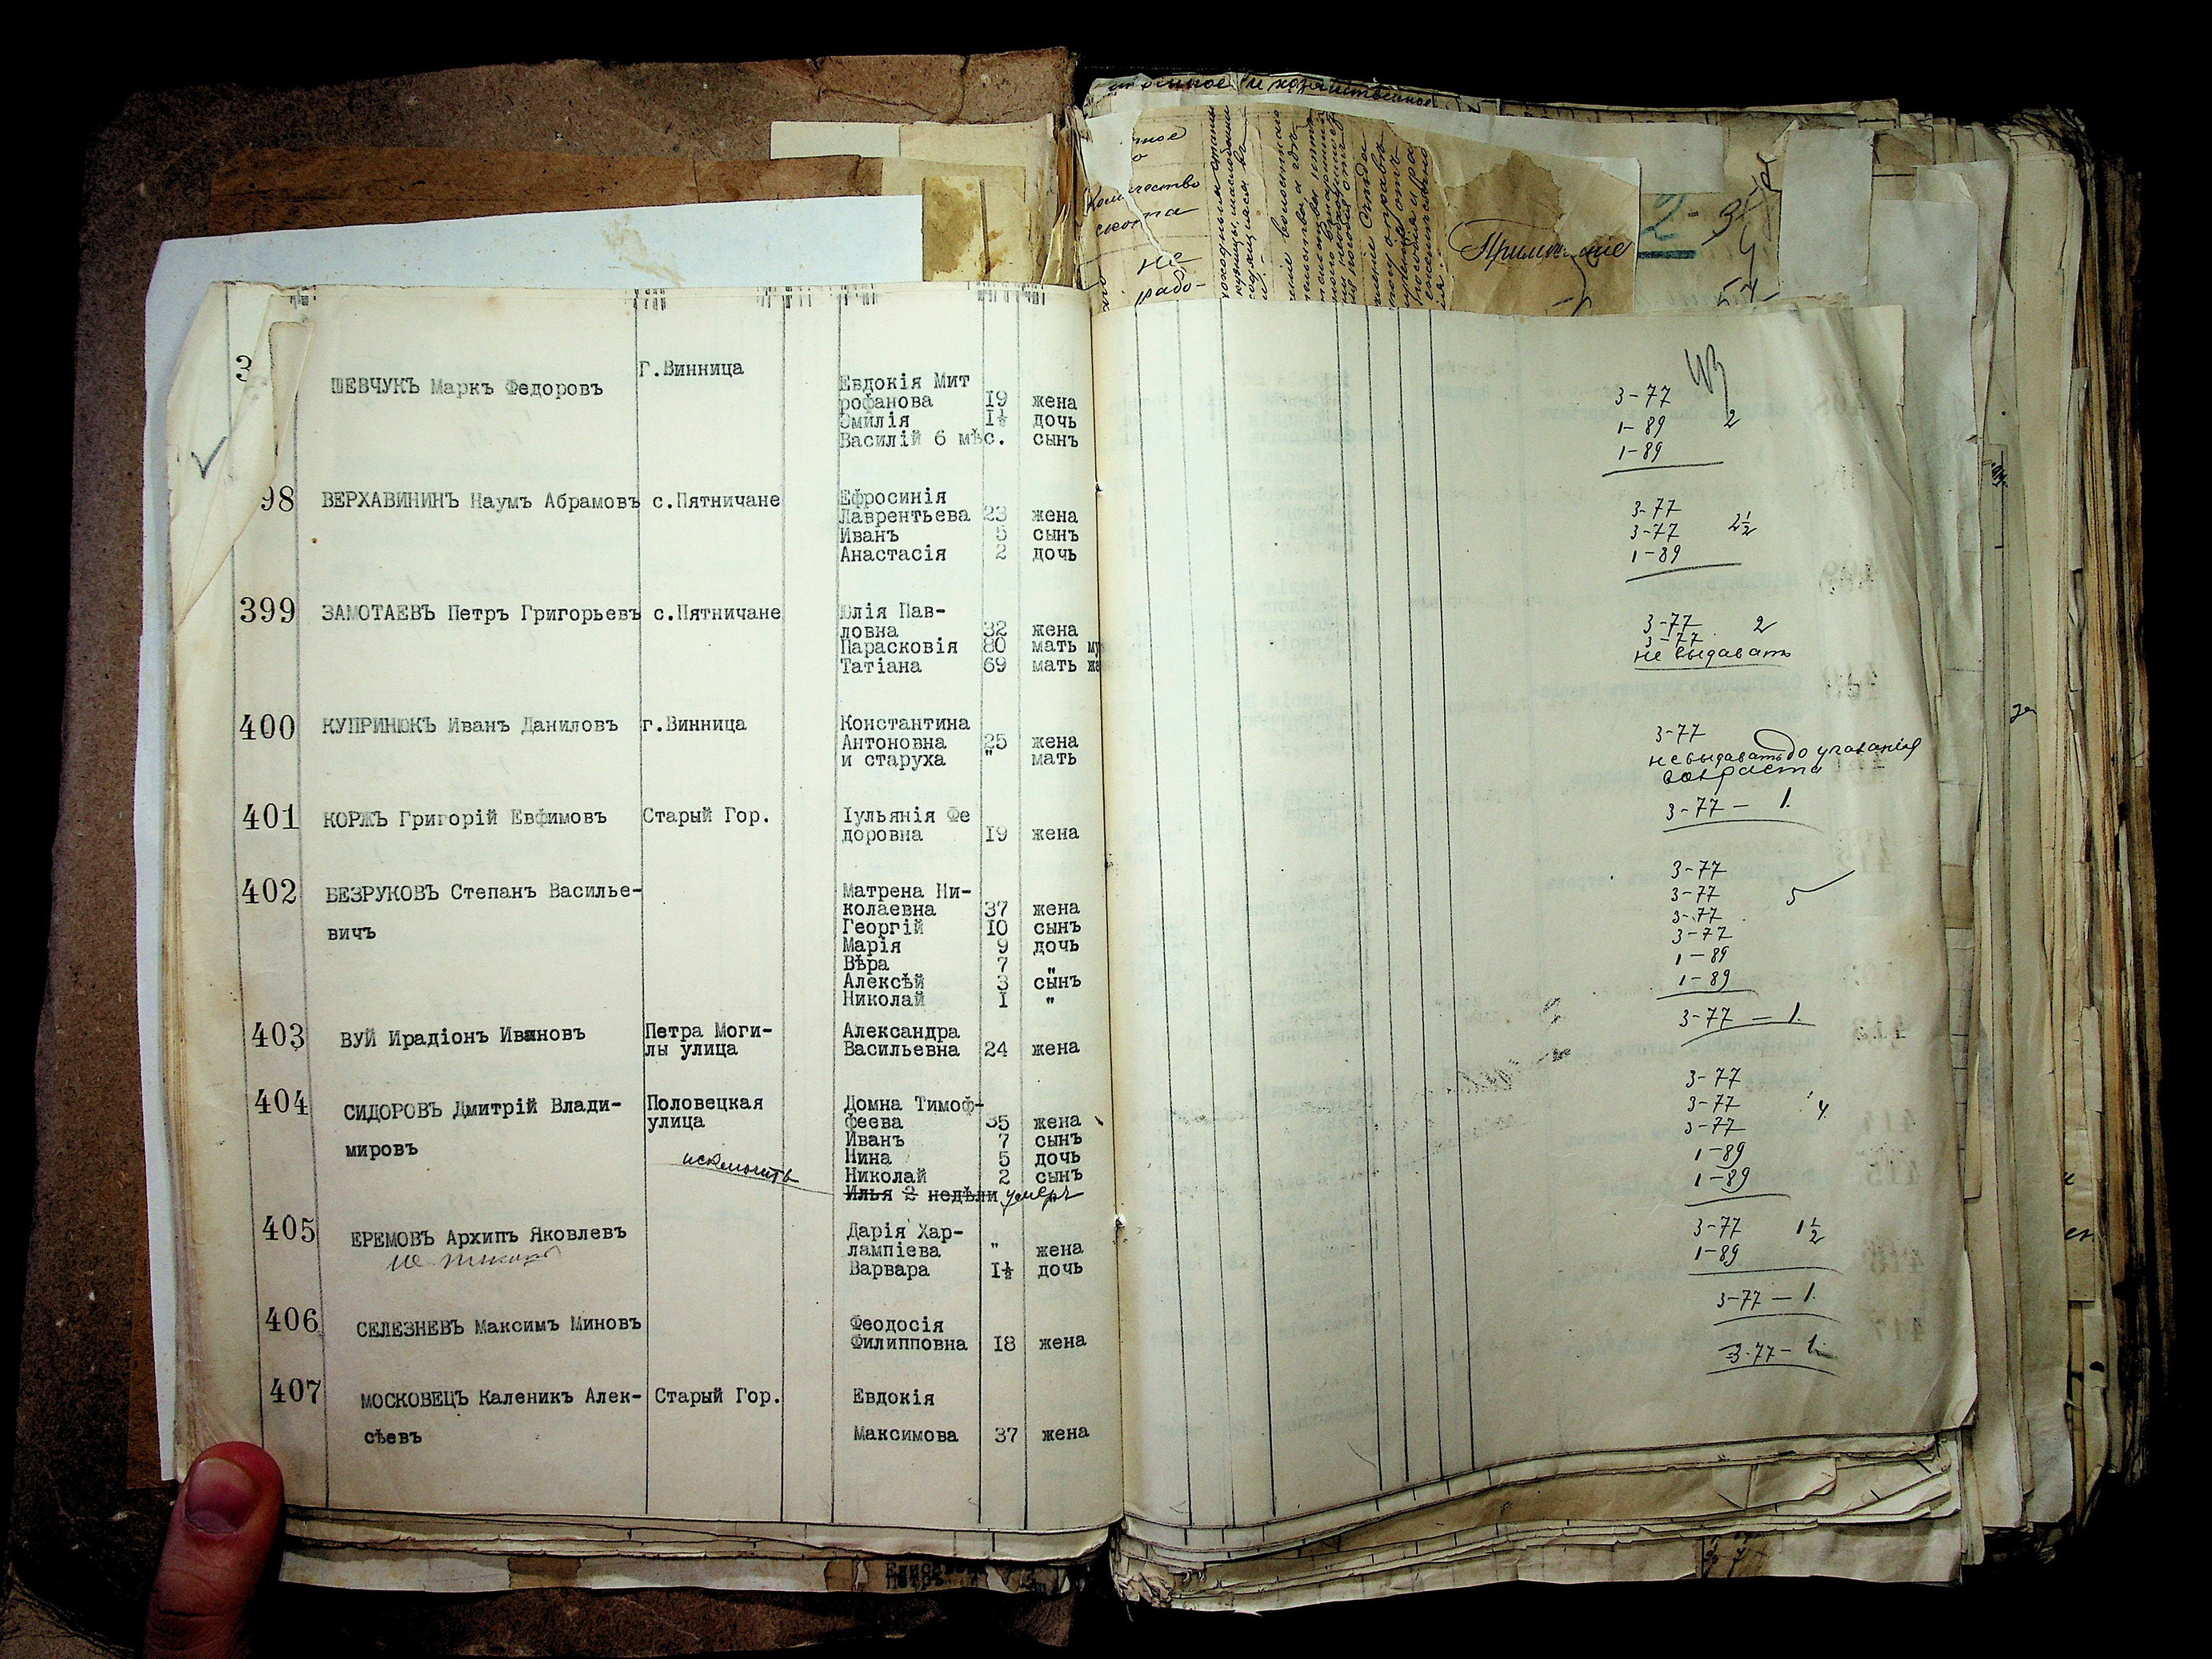 Количество
скота
не
рабо-
Примечание
3
ШЕВЧУКЪ Маркъ Федоровъ
Г.Винница
Евдокія Мит
рофанова 19 жена
Эмилія 1½ дочь
Василій 6 мѣс. сынъ
3-77
1-89 2
1-89
98 ВЕРХАВИНИНЪ Наумъ Абрамовъ с.Пятничане
Ефросинія
Лаврентьева 23 жена
Иванъ 5 сынъ
Анастасія 2 дочь
3-77
3-77 2½
1-89
399 ЗАМОТАЕВЪ Петръ Григорьевъ с.Пятничане
Юлія Пав-
ловна 32 жена
Парасковія 80 мать му
Татіана 69 мать же
3-77 2
3-77
не выдавать
400 КУПРИНЮКЪ Иванъ Даниловъ г.Винница
Константина
Антоновна 25 жена
и старуха " мать
3-77
не выдавать до указанія
возраста
401 КОРЖЪ Григорій Евфимовъ Старый Гор.
Іульянія Фе
доровна 19 жена
3-77 — 1.
402 БЕЗРУКОВЪ Степанъ Василье-
вичъ
Матрена Ни-
колаевна 37 жена
Георгій 10 сынъ
Марія 9 дочь
Вѣра 7 "
Алексѣй 3 сынъ
Николай I "
3-77
3-77 5
3-77
3-77
1-89
1-89
403 ВУЙ Ирадіонъ Ивановъ
Петра Моги-
лы улица
Александра
Васильевна 24 жена
3-77 — 1.
404 СИДОРОВЪ Дмитрій Влади-
мировъ
Половецкая
улица
исключить
Домна Тимоф-
феева 35 жена
Иванъ 7 сынъ
Нина 5 дочь
Николай 2 сынъ
Илья 2 недѣли умеръ
3-77
3-77 4
3-77
1-89
1-89
405 ЕРЕМОВЪ Архипъ Яковлевъ
Дарія Хар-
лампіева " жена
Варвара 1½ дочь
3-77 1½
1-89
406 СЕЛЕЗНЕВЪ Максимъ Миновъ
Феодосія
Филипповна 18 жена
3-77 — 1.
407 МОСКОВЕЦЪ Каленикъ Алек-
сѣевъ
Старый Гор.
Евдокія
Максимова 37 жена
3-77 — 1.